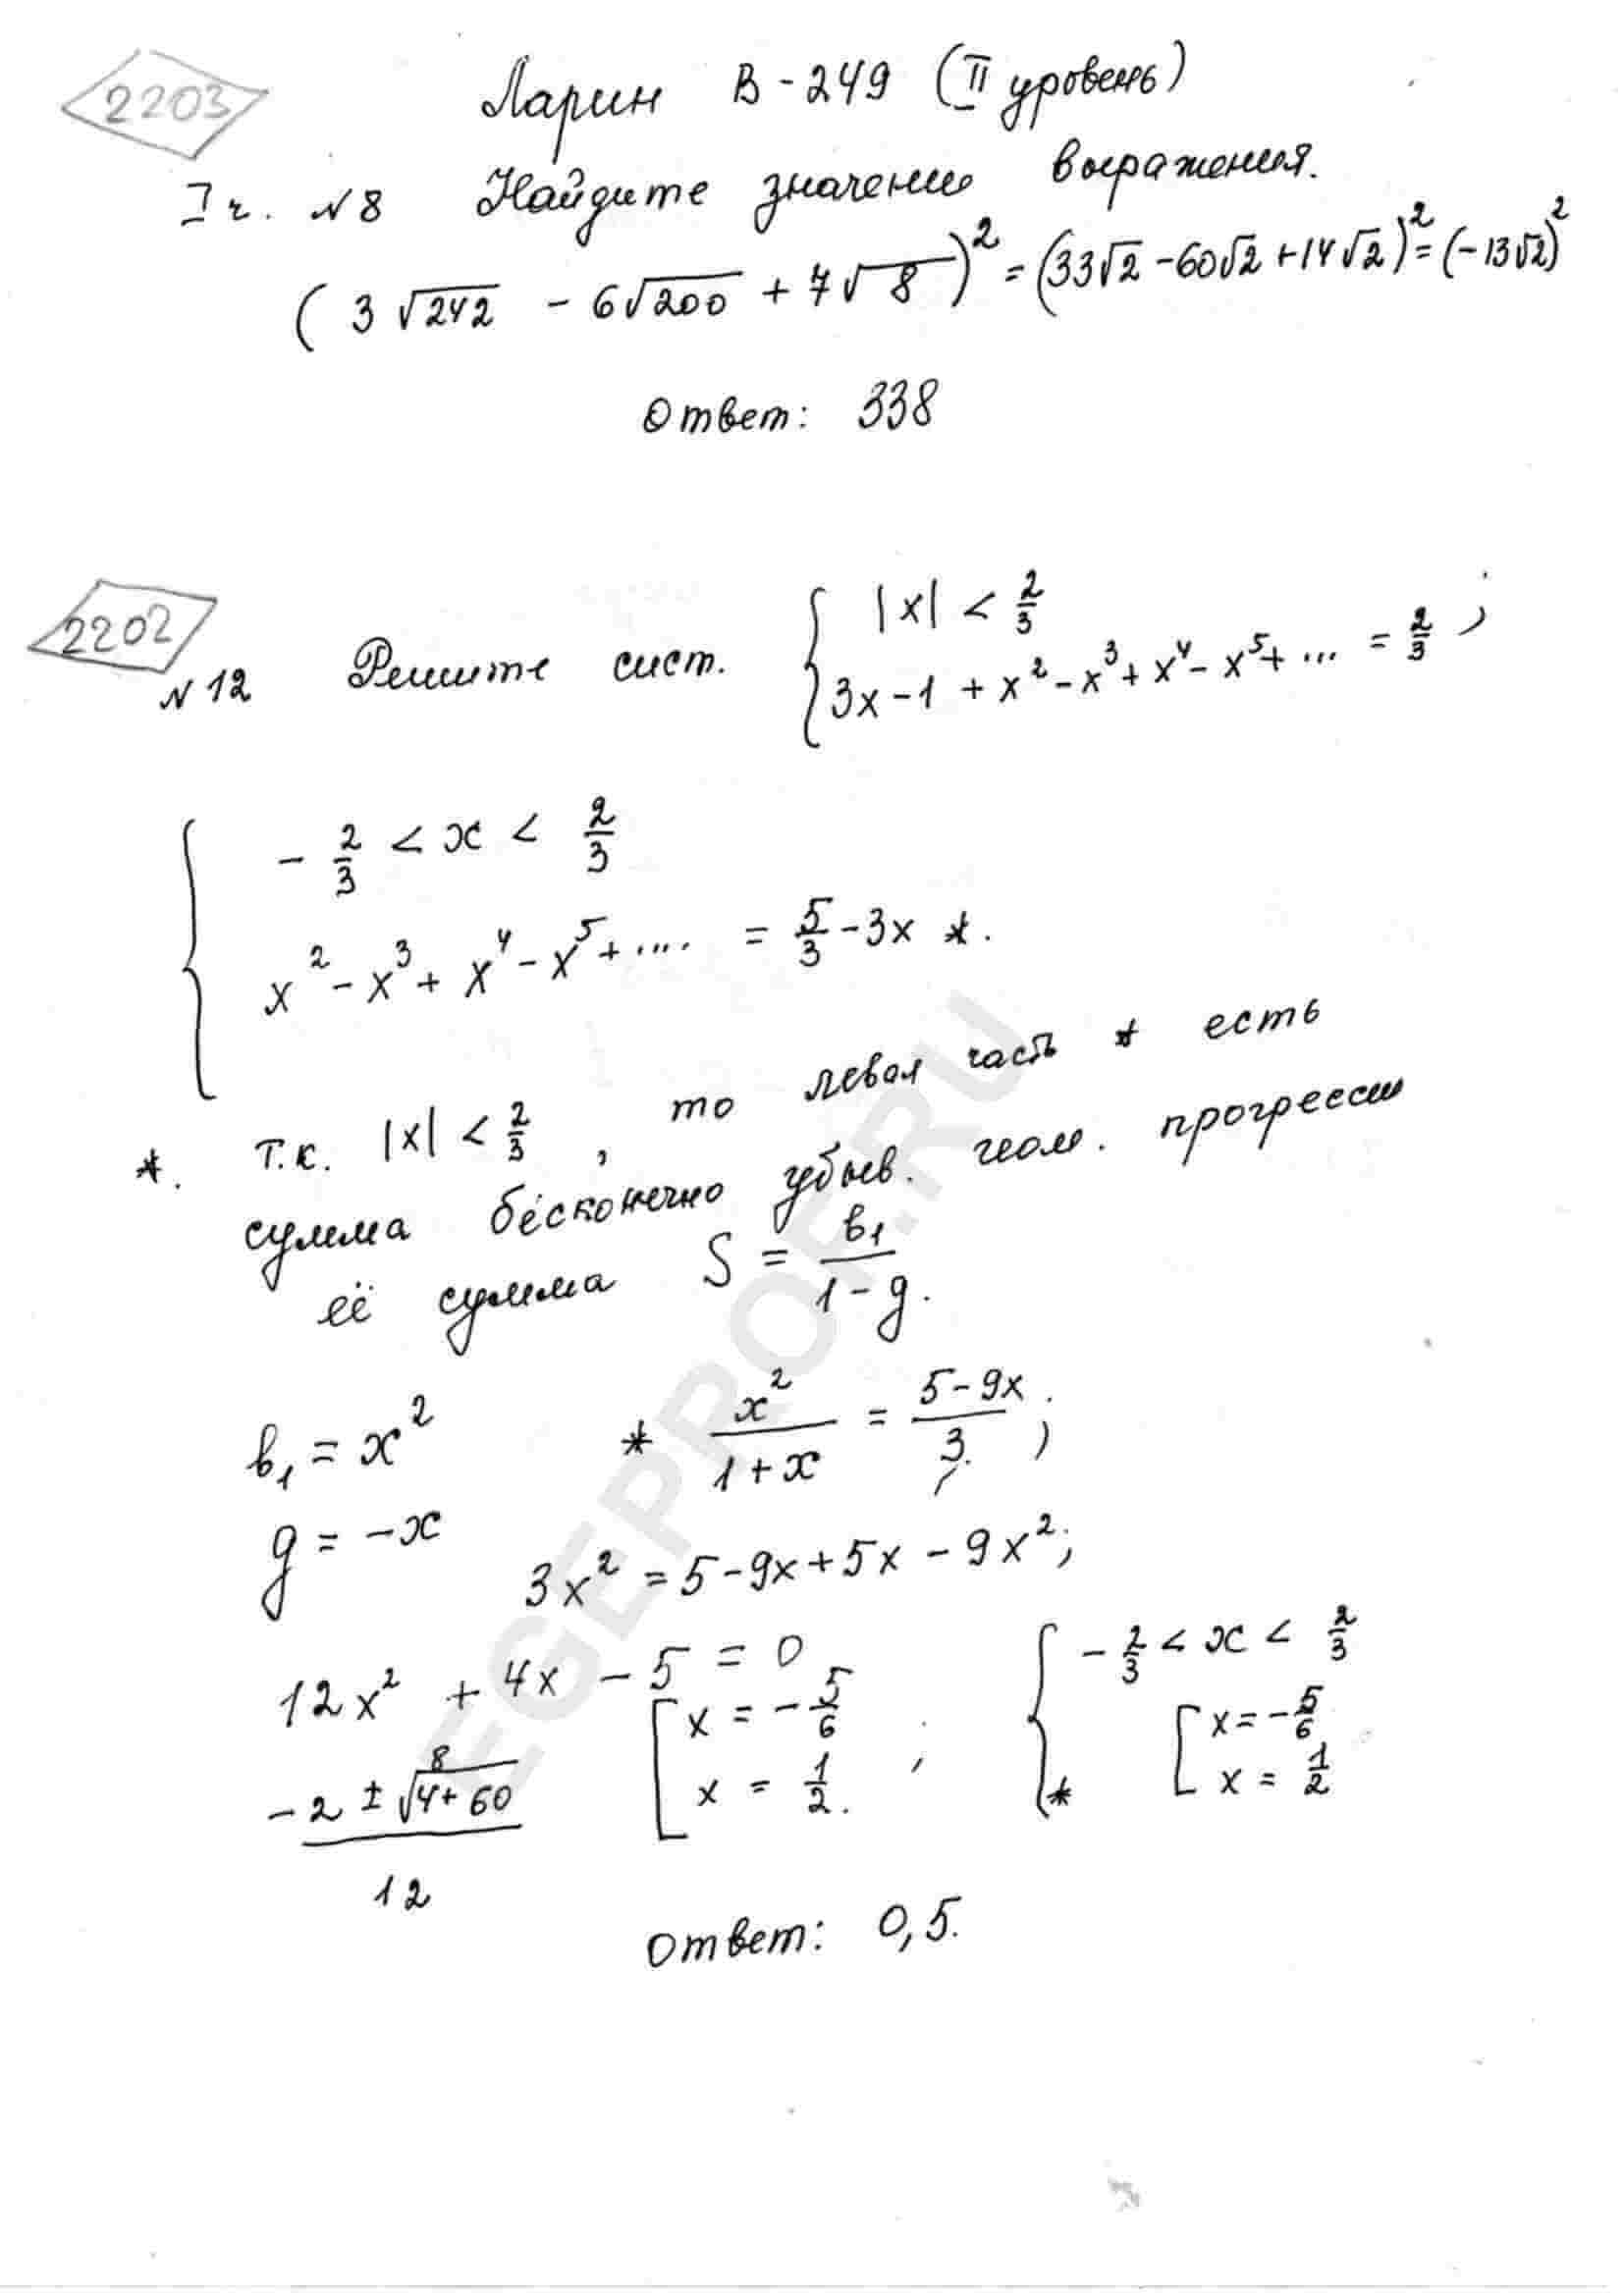 2203
Ларин В-249 (II уровень)
I ч. №8 Найдите значение выражения.
(3√242 - 6√200 + 7√8)² = (33√2 - 60√2 + 14√2)² = (-13√2)²
Ответ: 338
2202
№12 Решите сист. { |x| < 2/3
3x - 1 + x² - x³ + x⁴ - x⁵ + ... = 2/3 ;
{ - 2/3 < x < 2/3
x² - x³ + x⁴ - x⁵ + .... = 5/3 - 3x *.
*. т.к. |x| < 2/3 , то левая часть * есть
сумма бесконечно убыв. геом. прогрессии
её сумма S = b₁/(1 - q).
b₁ = x² * x²/(1 + x) = (5 - 9x)/3 ;
q = -x
3x² = 5 - 9x + 5x - 9x² ;
12x² + 4x - 5 = 0
(-2 ± √(4 + 60))/12
8
[ x = - 5/6
x = 1/2. ;
{ - 2/3 < x < 2/3
* [ x = - 5/6
x = 1/2
Ответ: 0,5.
EGEPROF.RU